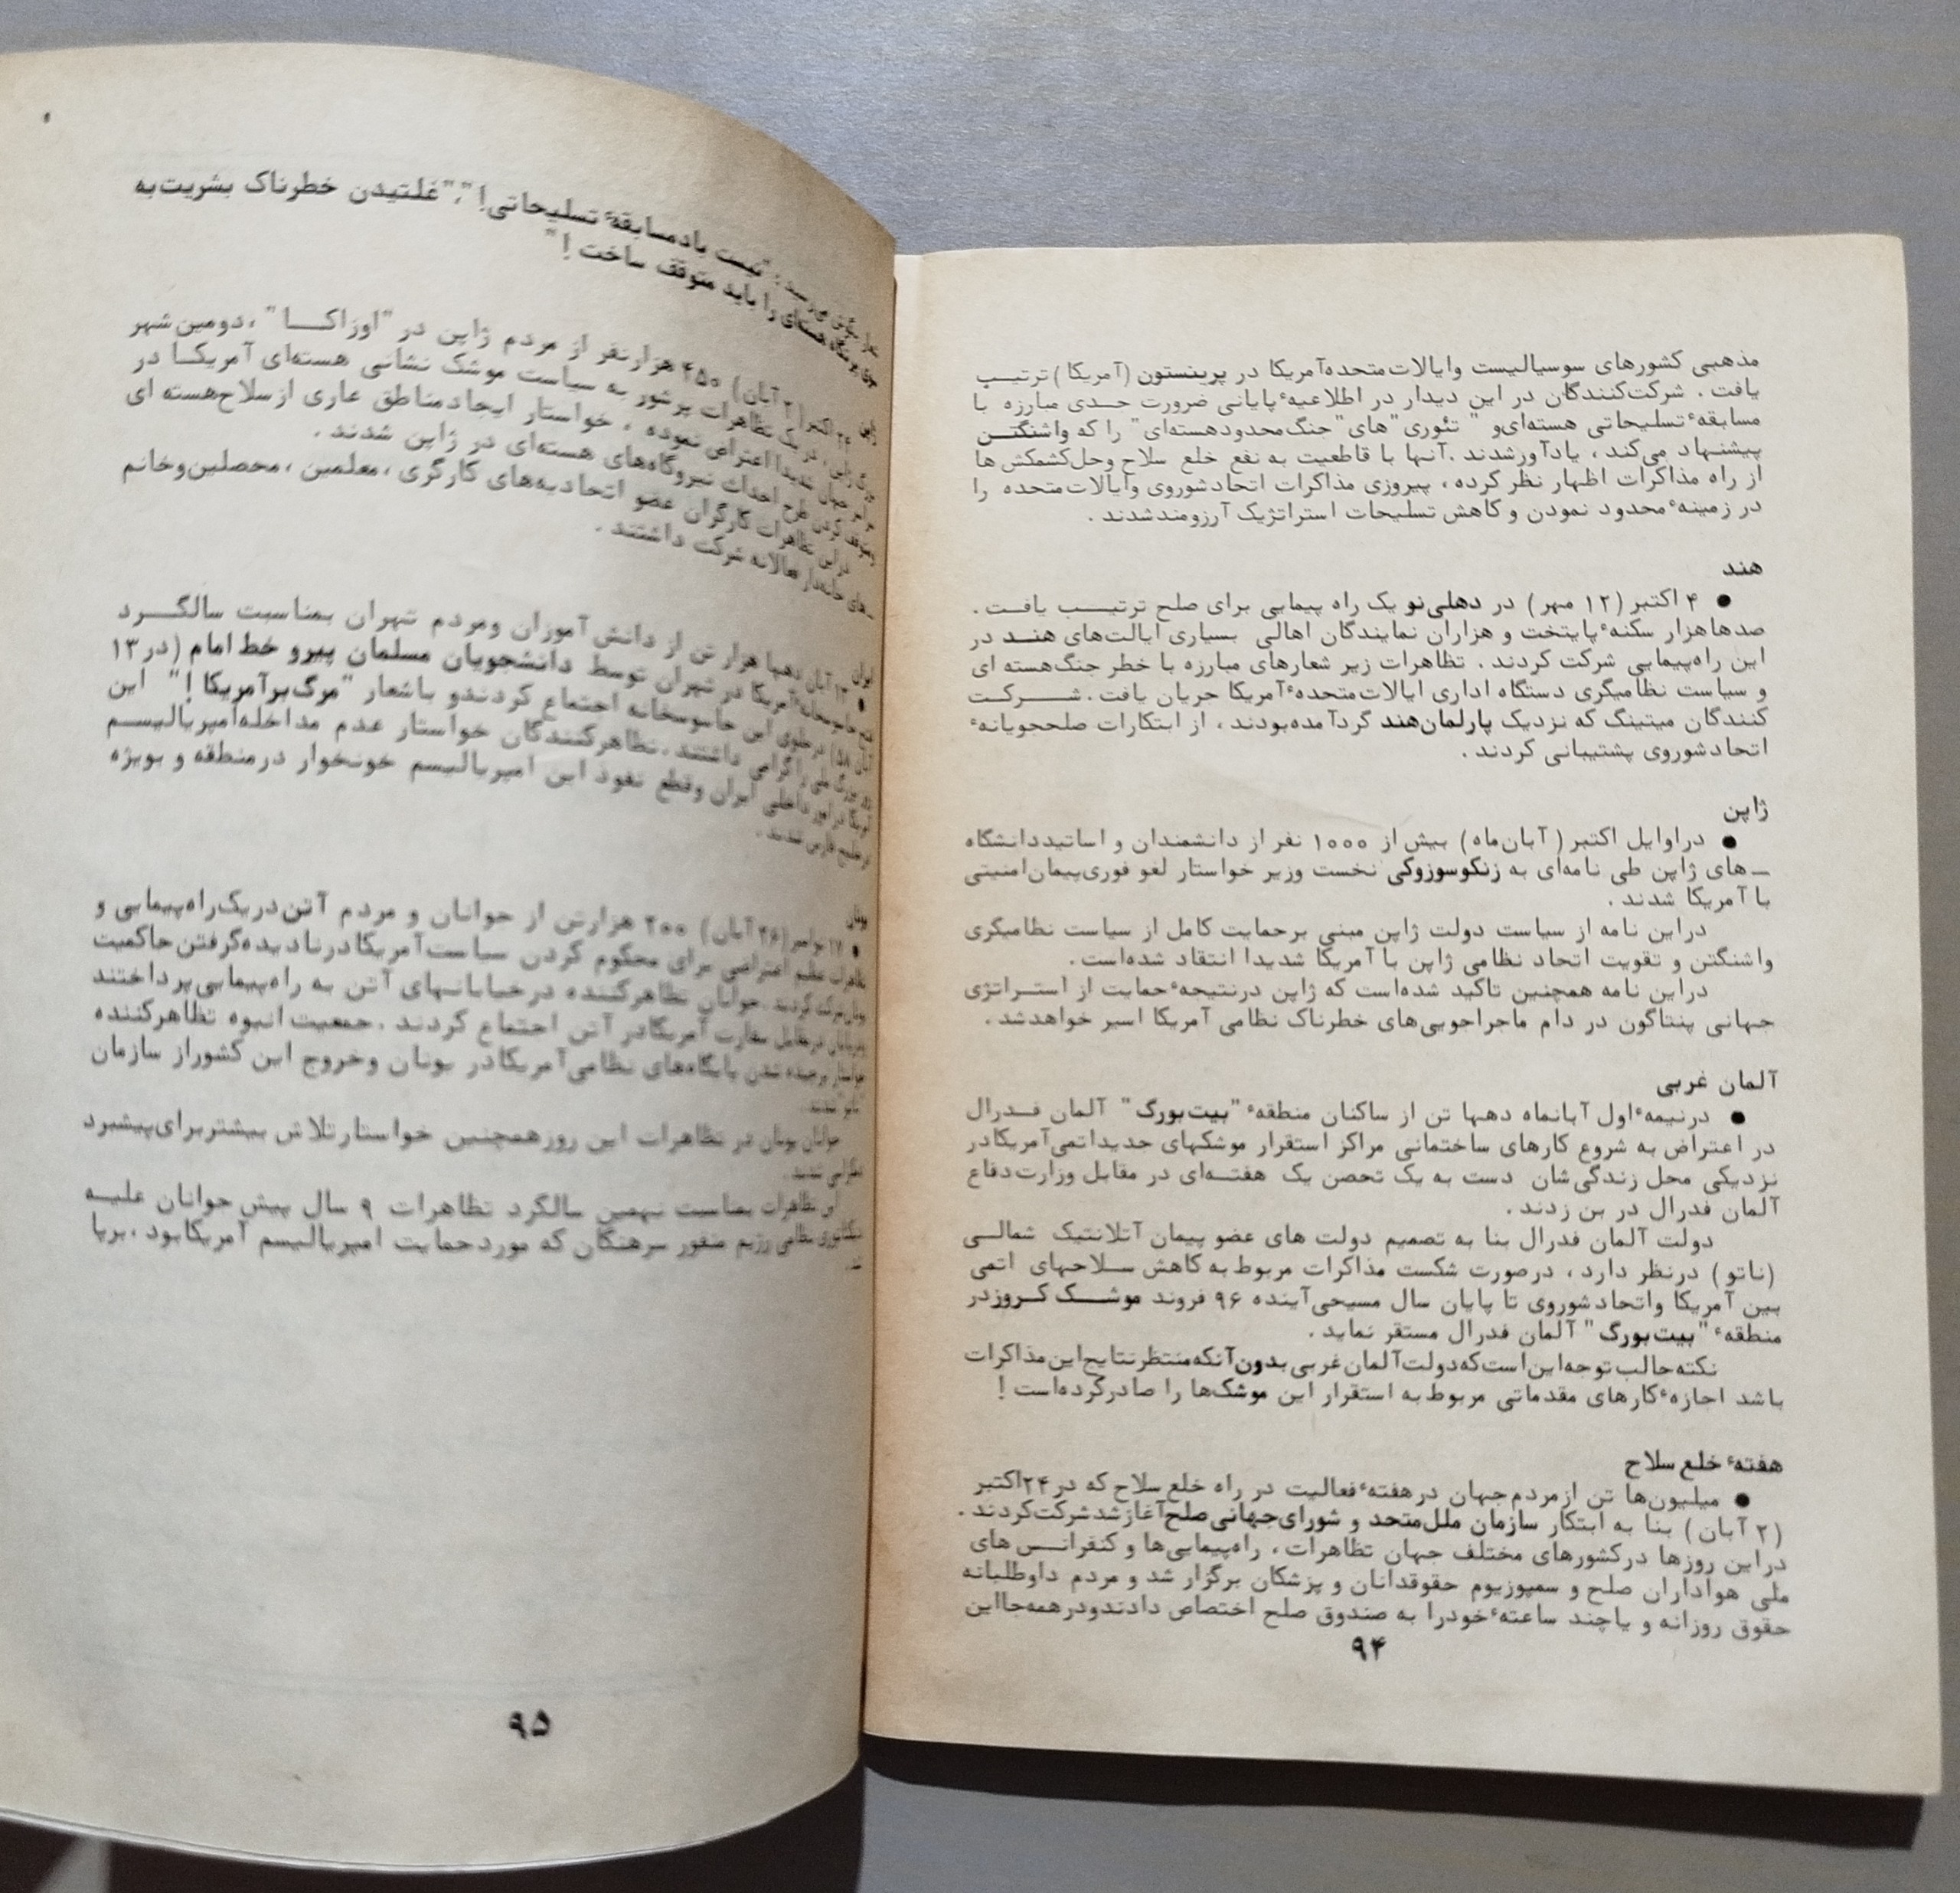 مذهبی کشورهای سوسیالیست وایالات‌متحده‌آمریکا در پرینستون (آمریکا) ترتیب
یافت . شرکت‌کنندگان در این دیدار در اطلاعیهٔ پایانی ضرورت جدی مبارزه با
مسابقهٔ تسلیحاتی هسته‌ای‌و " تئوری"های"جنگ‌محدودهسته‌ای" را که واشنگتن
پیشنهاد می‌کند ، یادآورشدند .آنها با قاطعیت به نفع خلع سلاح وحل‌کشمکش ها
از راه مذاکرات اظهار نظر کرده ، پیروزی مذاکرات اتحادشوروی وایالات‌متحده را
در زمینهٔ محدود نمودن و کاهش تسلیحات استراتژیک آرزومندشدند .
هند
● ۴ اکتبر (۱۲ مهر) در دهلی‌نو یک راه پیمایی برای صلح ترتیب یافت .
صدهاهزار سکنهٔ پایتخت و هزاران نمایندگان اهالی بسیاری ایالت‌های هند در
این راه‌پیمایی شرکت کردند . تظاهرات زیر شعارهای مبارزه با خطر جنگ‌هسته ای
و سیاست نظامیگری دستگاه اداری ایالات‌متحدهٔ آمریکا جریان یافت . شرکت
کنندگان میتینگ که نزدیک پارلمان‌هند گردآمده‌بودند ، از ابتکارات صلحجویانهٔ
اتحادشوروی پشتیبانی کردند .
ژاپن
● دراوایل اکتبر (آبان‌ماه) بیش‌از ۱۰۰۰ نفر از دانشمندان و اساتیددانشگاه
ــ های ژاپن طی نامه‌ای به زنکوسوزوکی نخست وزیر خواستار لغو فوری‌پیمان‌امنیتی
با آمریکا شدند .
دراین نامه از سیاست دولت ژاپن مبنی برحمایت کامل از سیاست نظامیگری
واشنگتن و تقویت اتحاد نظامی ژاپن با آمریکا شدیدا انتقاد شده‌است .
دراین نامه همچنین تاکید شده‌است که ژاپن درنتیجهٔ حمایت از استراتژی
جهانی پنتاگون در دام ماجراجویی‌های خطرناک نظامی آمریکا اسیر خواهدشد .
آلمان غربی
● درنیمهٔ اول آبانماه دهها تن از ساکنان منطقهٔ "بیت‌بورگ" آلمان فدرال
در اعتراض به شروع کارهای ساختمانی مراکز استقرار موشکهای جدیداتمی‌آمریکادر
نزدیکی محل زندگی‌شان دست به یک تحصن یک هفته‌ای در مقابل وزارت‌دفاع
آلمان فدرال در بن زدند .
دولت آلمان فدرال بنا به تصمیم دولت های عضو پیمان آتلانتیک شمالی
(ناتو) درنظر دارد ، درصورت شکست مذاکرات مربوط به کاهش سلاحهای اتمی
بین آمریکا واتحادشوروی تا پایان سال مسیحی‌آینده ۹۶ فروند موشک کروزدر
منطقهٔ "بیت‌بورگ" آلمان فدرال مستقر نماید .
نکته‌جالب‌توجه‌این‌است‌که‌دولت‌آلمان‌غربی‌بدون‌آنکه‌منتظرنتایج‌این‌مذاکرات
باشد اجازهٔ کارهای مقدماتی مربوط‌به استقرار این موشک‌ها را صادرکرده‌است !
هفتهٔ خلع سلاح
● میلیون‌ها تن ازمردم‌جهان درهفتهٔ فعالیت در راه خلع سلاح که در۲۴اکتبر
(۲ آبان) بنا به ابتکار سازمان ملل‌متحد و شورای‌جهانی‌صلح‌آغازشدشرکت‌کردند .
دراین روزها درکشورهای مختلف جهان تظاهرات ، راه‌پیمایی‌ها و کنفرانس های
ملی هواداران صلح و سمپوزیوم حقوقدانان و پزشکان برگزار شد و مردم داوطلبانه
حقوق روزانه و یاچند ساعتهٔ خودرا به صندوق صلح اختصاص دادندودرهمه‌جااین
۹۴
"نیست بادمسابقهٔ تسلیحاتی!"،"غلتیدن خطرناک بشریت‌به
را باید متوقف ساخت !"
ژاپن
اکتبر (۲ آبان) ۴۵۰ هزارنفر از مردم ژاپن در "اوزاکا" ،دومین‌شهر
در یک تظاهرات پرشور به سیاست موشک نشانی هسته‌ای آمریکا در
شدیدا اعتراض نموده ، خواستار ایجادمناطق عاری ازسلاح‌هسته ای
طرح احداث نیروگاه‌های هسته‌ای در ژاپن شدند .
دراین تظاهرات کارگران عضو اتحادیه‌های کارگری ،معلمین ،محصلین‌وخانم
ــ های خانه‌دار فعالانه شرکت داشتند .
ایران
● ۱۳ آبان دهها هزار تن از دانش‌آموزان ومردم تهران بمناسبت سالگرد
آمریکا در تهران توسط دانشجویان مسلمان پیرو خط امام (در۱۳
آبان ۵۸) درجلوی این جاسوسخانه اجتماع کردندو باشعار "مرگ‌برآمریکا !" این
را گرامی داشتند .تظاهرکنندگان خواستار عدم مداخله‌امپریالیسم
آمریکا درامور داخلی ایران وقطع نفوذ این امپریالیسم خونخوار درمنطقه و بویژه
خلیج فارس شدند .
یونان
● ۱۷ نوامبر (۲۶ آبان) ۲۰۰ هزارتن از جوانان و مردم آتن‌دریک‌راه‌پیمایی و
تظاهرات عظیم اعتراضی برای محکوم کردن سیاست‌آمریکادرنادیده‌گرفتن‌حاکمیت
یونان‌شرکت کردند . جوانان تظاهرکننده درخیابانهای آتن به راه‌پیمایی‌پرداختند
درمقابل سفارت آمریکادر آتن اجتماع کردند .جمعیت انبوه تظاهرکننده
خواستار برچیده شدن پایگاه‌های نظامی‌آمریکادر یونان وخروج این کشوراز سازمان
"ناتو" شدند .
جوانان یونان در تظاهرات این روزهمچنین خواستارتلاش بیشتربرای‌پیشبرد
شدند .
این تظاهرات بمناسبت نهمین سالگرد تظاهرات ۹ سال پیش جوانان علیه
دیکتاتوری نظامی رژیم منفور سرهنگان که موردحمایت امپریالیسم آمریکابود ،برپا
شد .
۹۵